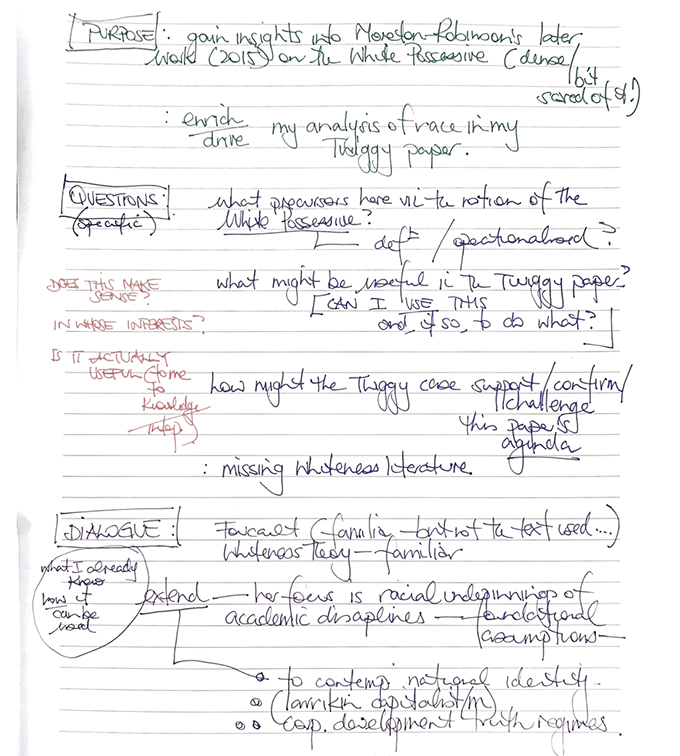 PURPOSE: gain insights into Moreton-Robinson's later
work (2015) on the White Possessive (dense/
bit
scared of it!)
: enrich
drive my analysis of race in my
Twiggy paper.
QUESTIONS: what precursors here vis the notion of the
(specific) White Possessive?
def / operationalised?
DOES THIS MAKE
SENSE?
what might be useful in the Twiggy paper?
[CAN I USE THIS
and, if so, to do what?]
IN WHOSE INTERESTS?
IS IT ACTUALLY
USEFUL (to me
to
knowledge
how might the Twiggy case support/confirm/
challenge
this paper's
agenda
: missing Whiteness literature
DIALOGUE: Foucault (familiar - but not the text used....)
Whiteness Theory - familiar
what I already
know
how it
can be
used
extend - her focus is racial underpinnings of
academic disciplines - foundational
assumptions -
to contemp. national identity.
(larrikin capitalist/m)
corp. development truth regimes.